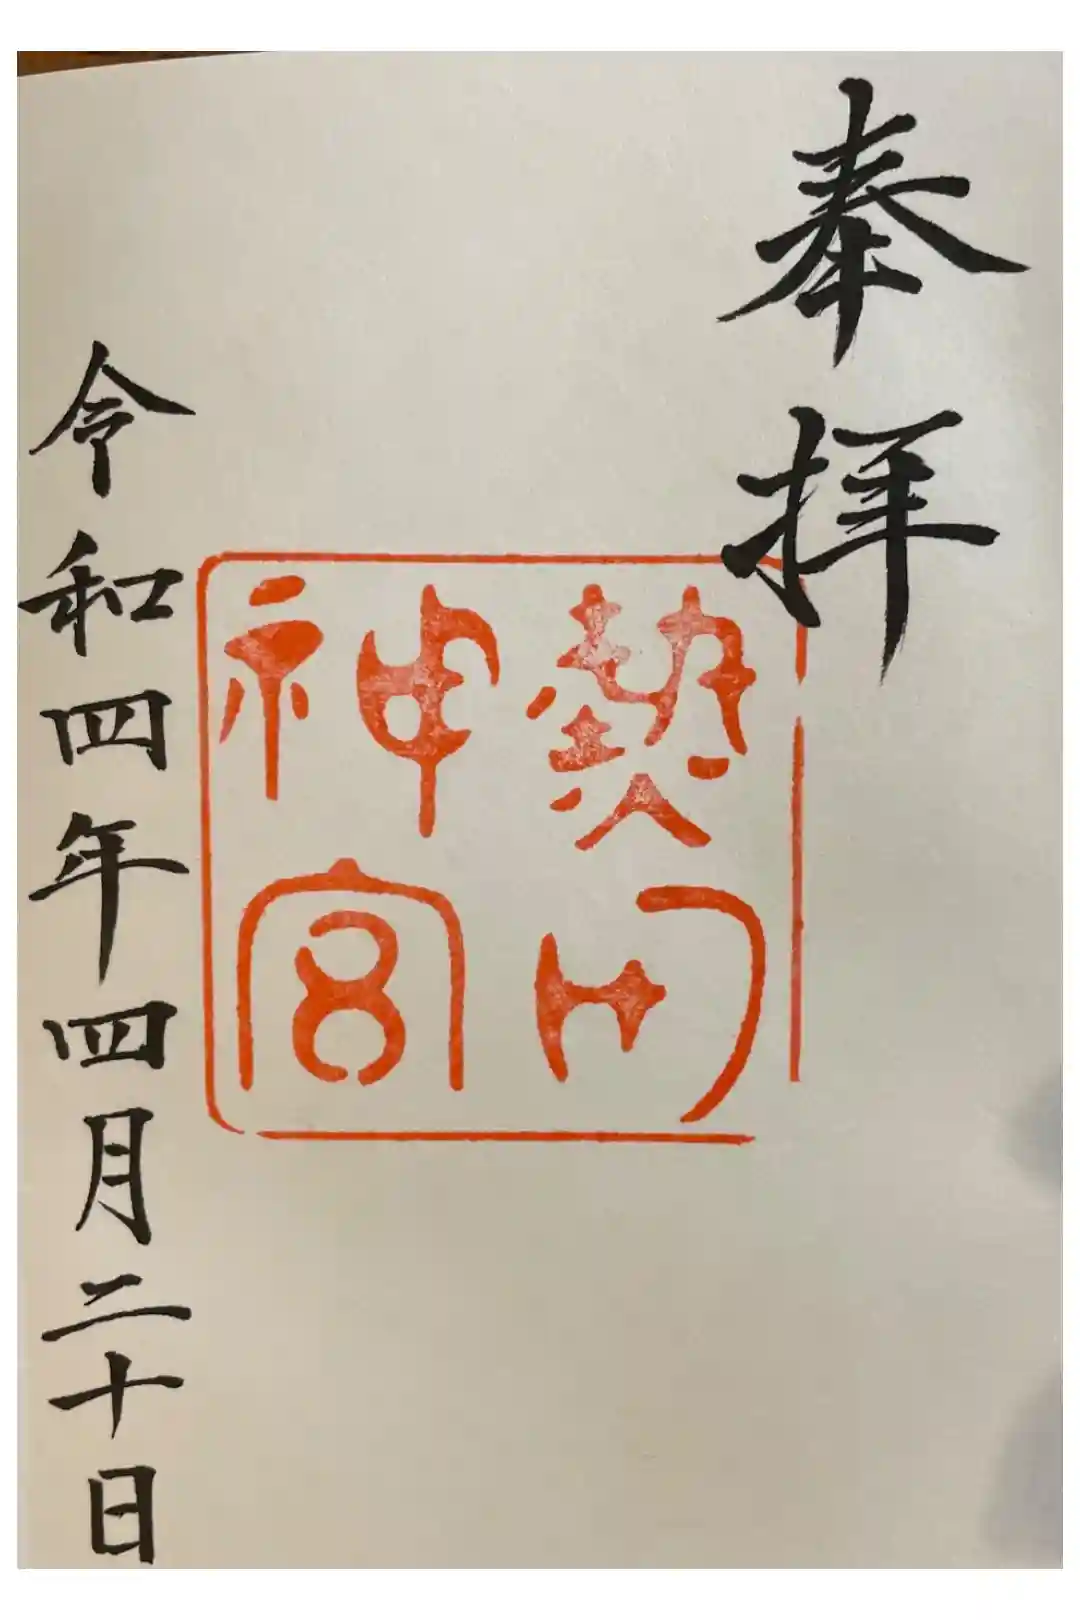 奉拝
熱田
神宮
令和四年四月二十日